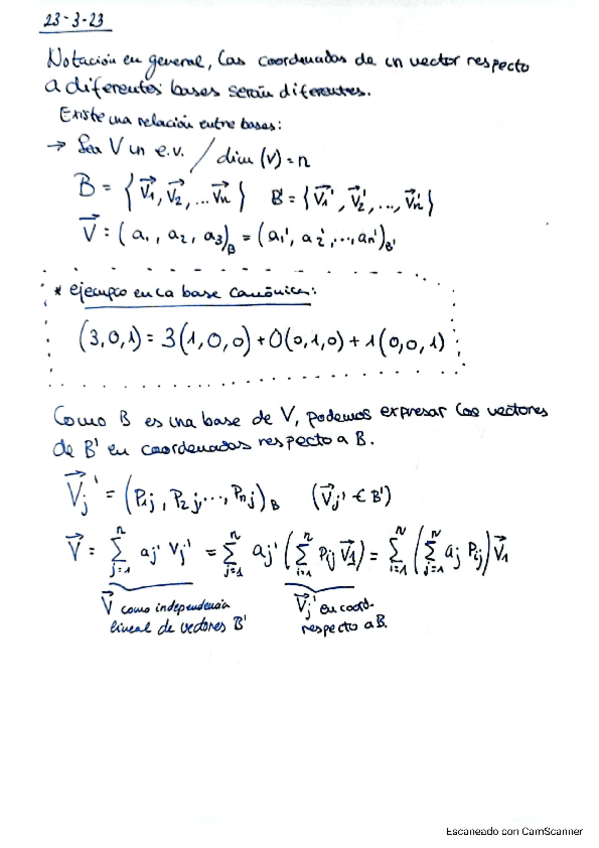 23-3-23
Notación en general, las coordenadas de un vector respecto
a diferentes bases serán diferentes.
Existe una relación entre bases:
→ Sea V un e.v. / dim (v) = n
B = { v⃗1, v⃗2, ... v⃗n } B' = { v⃗1', v⃗2', ..., v⃗n' }
V⃗ = (a1, a2, a3)B = (a1', a2', ..., an')B'
* ejemplo en la base canónica:
(3,0,1) = 3(1,0,0) + 0(0,1,0) + 1(0,0,1)
Como B es una base de V, podemos expresar los vectores
de B' en coordenadas respecto a B.
V⃗j' = (P1j, P2j, ..., Pnj)B (V⃗j' € B')
V⃗ = ∑_{j=1}^{n} aj' Vj' = ∑_{j=1}^{n} aj' (∑_{i=1}^{n} Pij V⃗1) = ∑_{i=1}^{n} (∑_{j=1}^{n} aj Pij) V⃗1
V⃗ como independencia
lineal de vectores B'
V⃗j' en coord.
respecto a B.
Escaneado con CamScanner